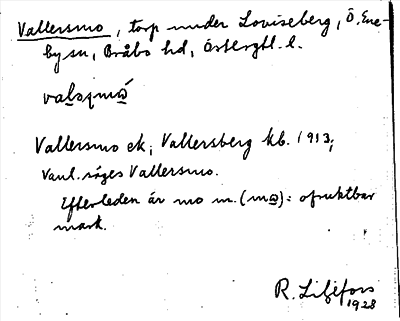 Vallersmo, torp under Loviseberg, Ö. Ene-
by sn, Bråbo hd, Östergtl. l.
Vallersmo ek; Vallersberg kb. 1913;
vanl. säges Vallersmo.
Efterleden är mo m. (mω): ofruktbar
mark.
R. Liljefors
1928